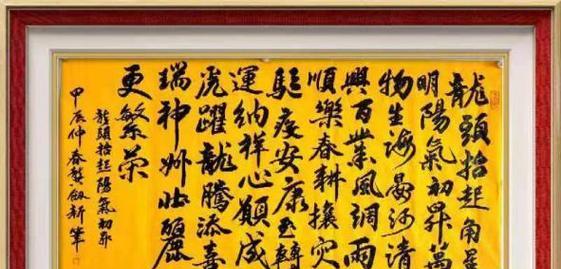 龍頭抬起角星
明陽氣初昇萬
物生海晏河清
興百業風調雨
順樂春耕攘灾
驅疫安康至轉
運納祥心願成
虎躍龍騰添喜
瑞神州壯麗
更繁榮
龍頭抬起陽氣初昇
甲辰仲春龔劔新筆